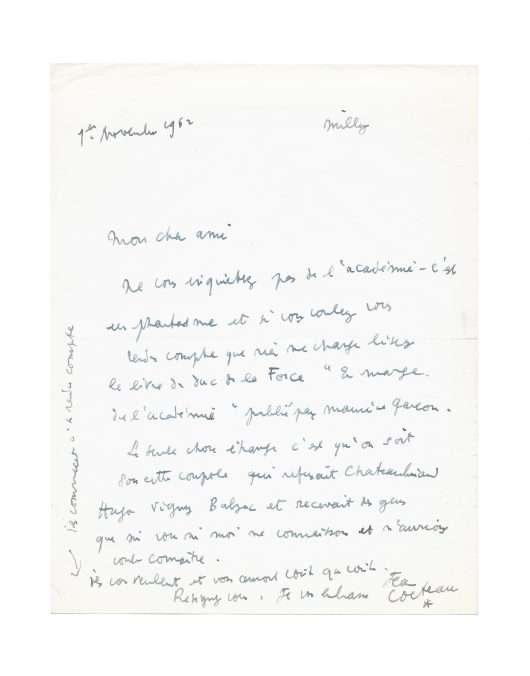 1er Novembre 1962
Milly
Mon cher ami
Ne vous inquiétez pas de l'"académie - c'est
un phantasme et si vous voulez vous
rendre compte que rien ne change lisez
le livre du duc de la Force "En marge
de l'académie" publié par maurice garçon.
La seule chose étrange c'est qu'on soit
sous cette coupole qui refusait Chateaubriand
Hugo Vigny Balzac et recevait des gens
que ni vous ni moi ne connaissons et n'aurions
voulu connaître.
ils vous veulent et vous auront coûte que coûte.
Résignez vous. Je vous embrasse
Jean
Cocteau
*
ils commencent à s'rendre compte